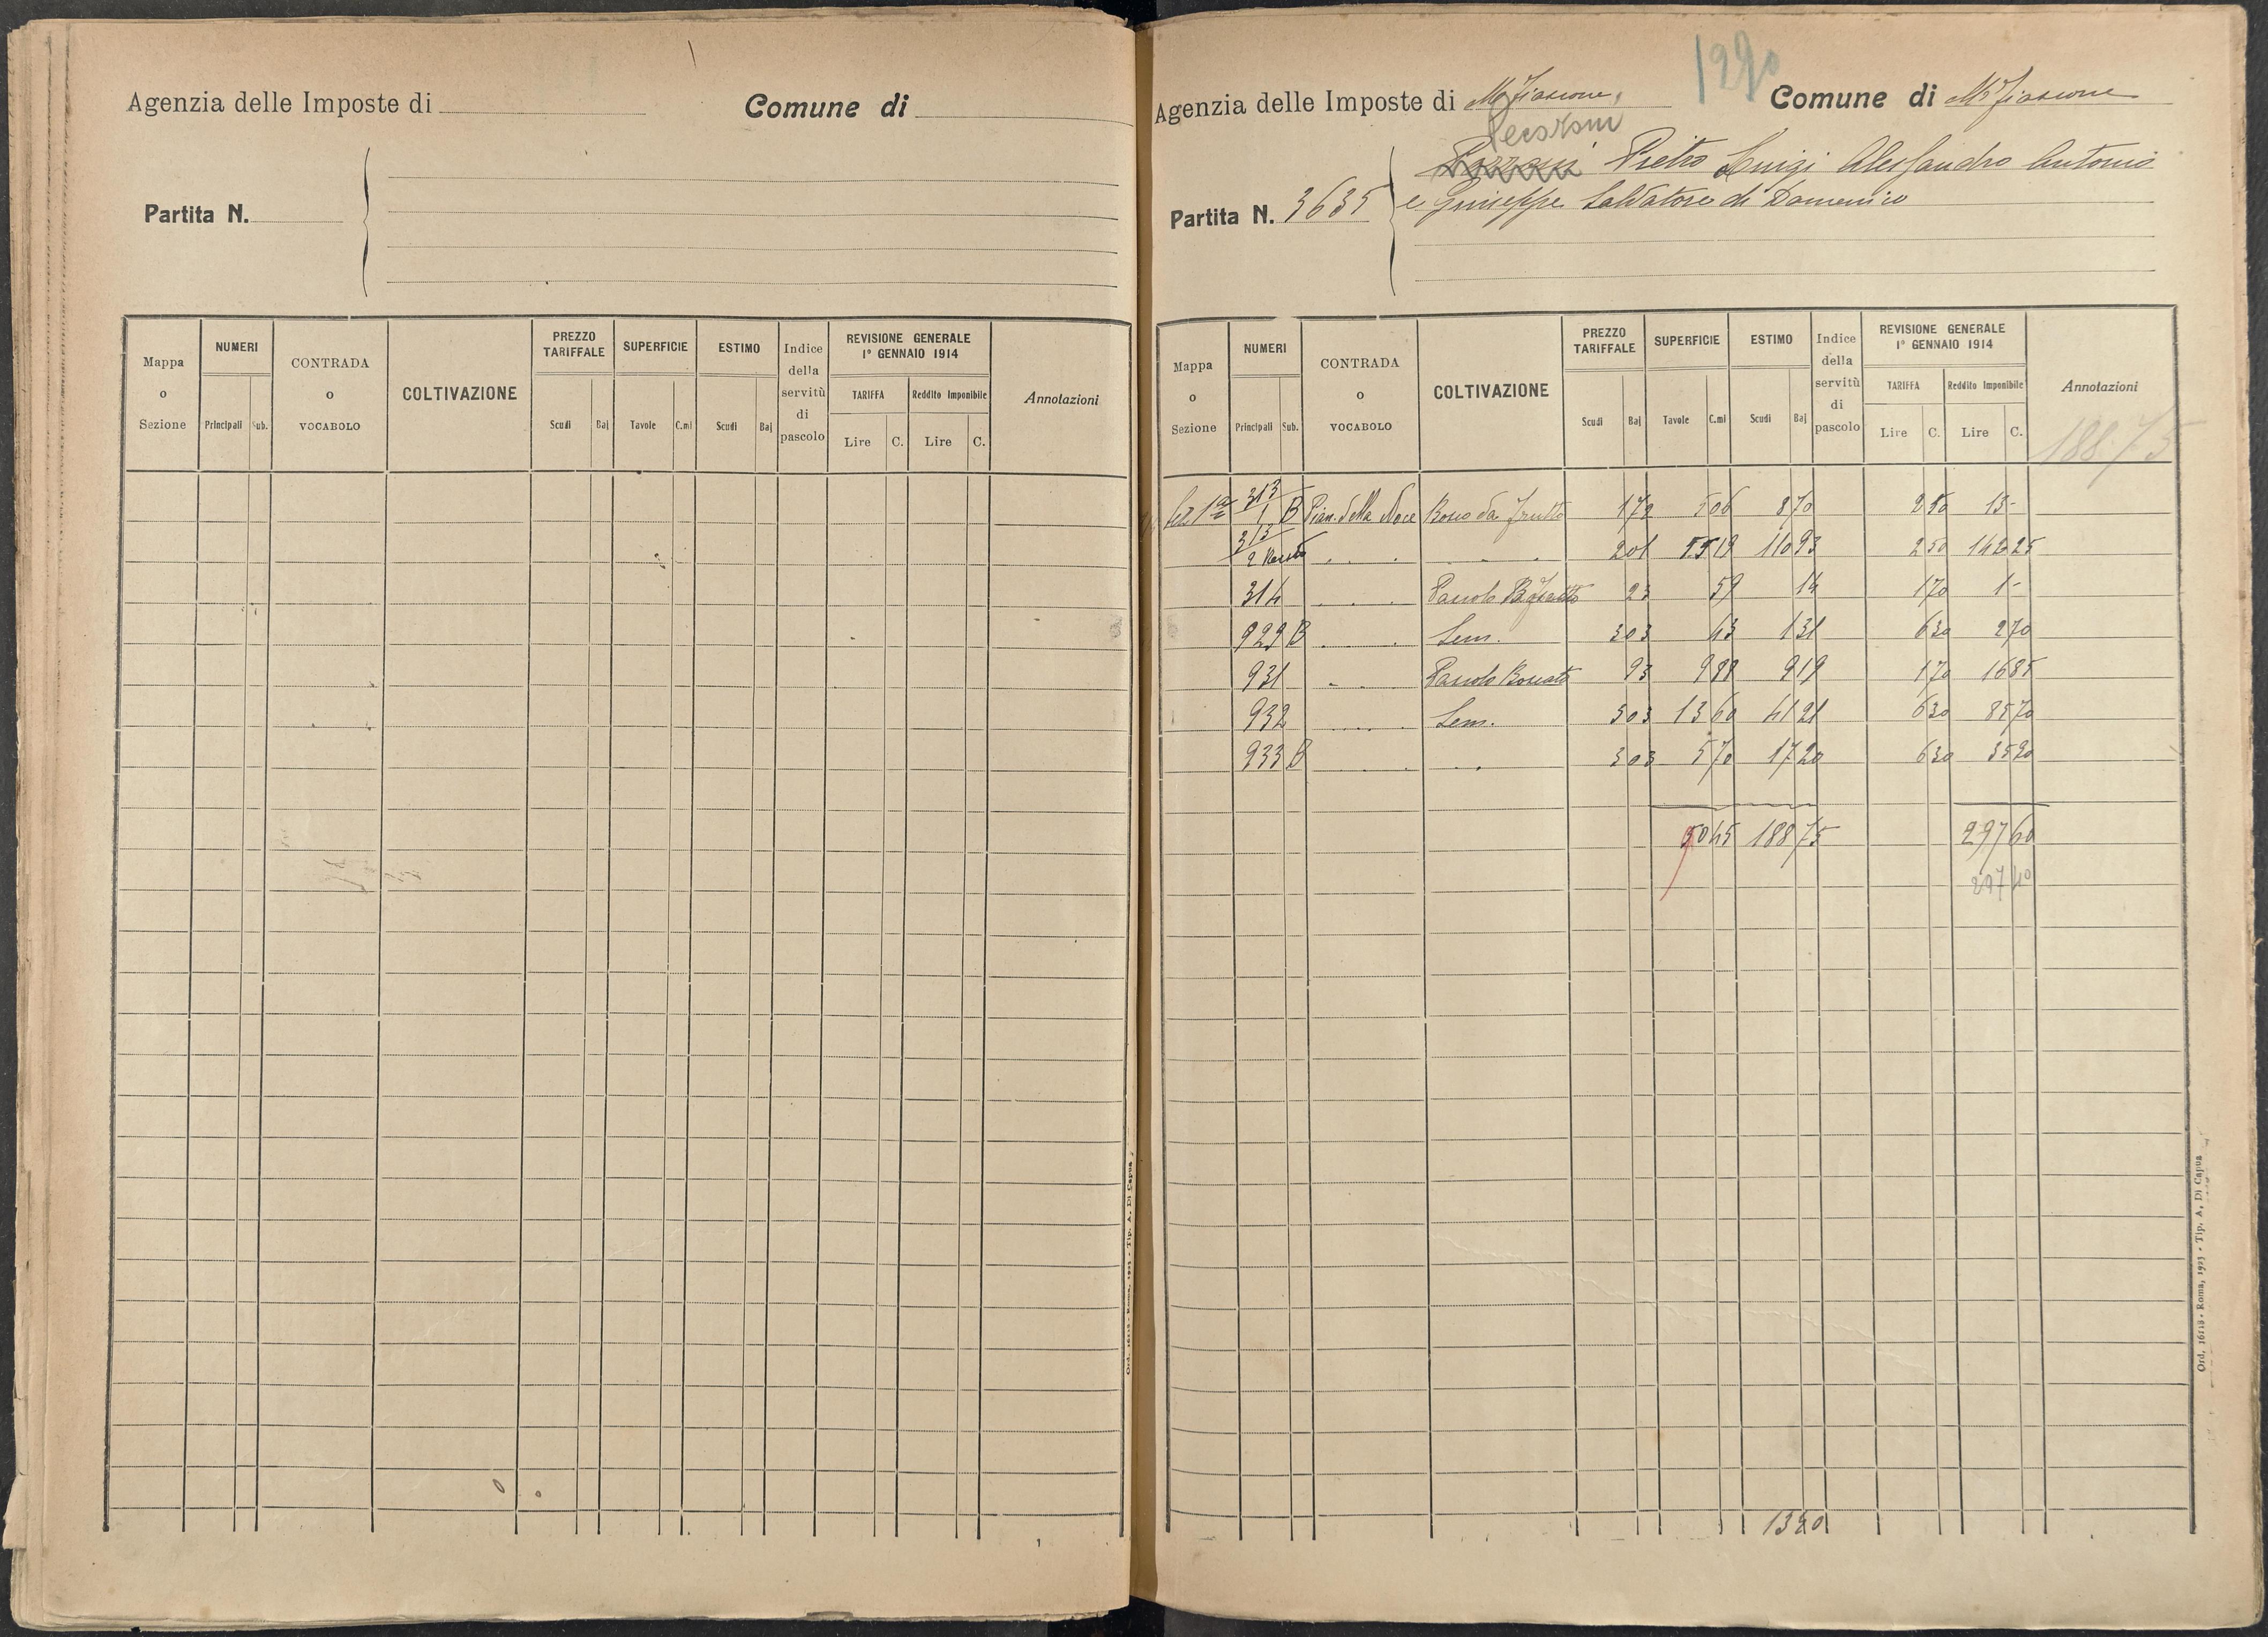 Agenzia delle Imposte di
Comune di
Partita N.
Mappa o Sezione
NUMERI
Principali Sub.
CONTRADA o VOCABOLO
COLTIVAZIONE
PREZZO TARIFFALE
Scudi Baj
SUPERFICIE
Tavole C.mi
ESTIMO
Scudi Baj
Indice della servitù di pascolo
REVISIONE GENERALE 1° GENNAIO 1914
TARIFFA Reddito Imponibile
Lire C. Lire C.
Annotazioni
1290
Agenzia delle Imposte di M. Fiascone
Comune di M. Fiascone
Pietro Luigi Alessandro Antonio
Partita N. 3635 e Giuseppe Salvatore di Domenico
Mappa o Sezione
NUMERI
Principali Sub.
CONTRADA o VOCABOLO
COLTIVAZIONE
PREZZO TARIFFALE
Scudi Baj
SUPERFICIE
Tavole C.mi
ESTIMO
Scudi Baj
Indice della servitù di pascolo
REVISIONE GENERALE 1° GENNAIO 1914
TARIFFA Reddito Imponibile
Lire C. Lire C.
Annotazioni
188.75
Sez 1ª 313/1 B Pian della Noce Bosco da frutto 172 506 870 250 13-
313/2 201 5519 11093 250 14225
314 23 59 14 170 1-
929 B Sem. 303 43 131 630 270
931 Pascolo Boscato 93 988 919 170 1685
932 Sem. 303 1360 4121 630 8570
933 B 303 570 1720 630 3590
9045 18875 29760
29740
1320
Ord. 16118 - Roma, 1923 - Tip. A. Di Capua